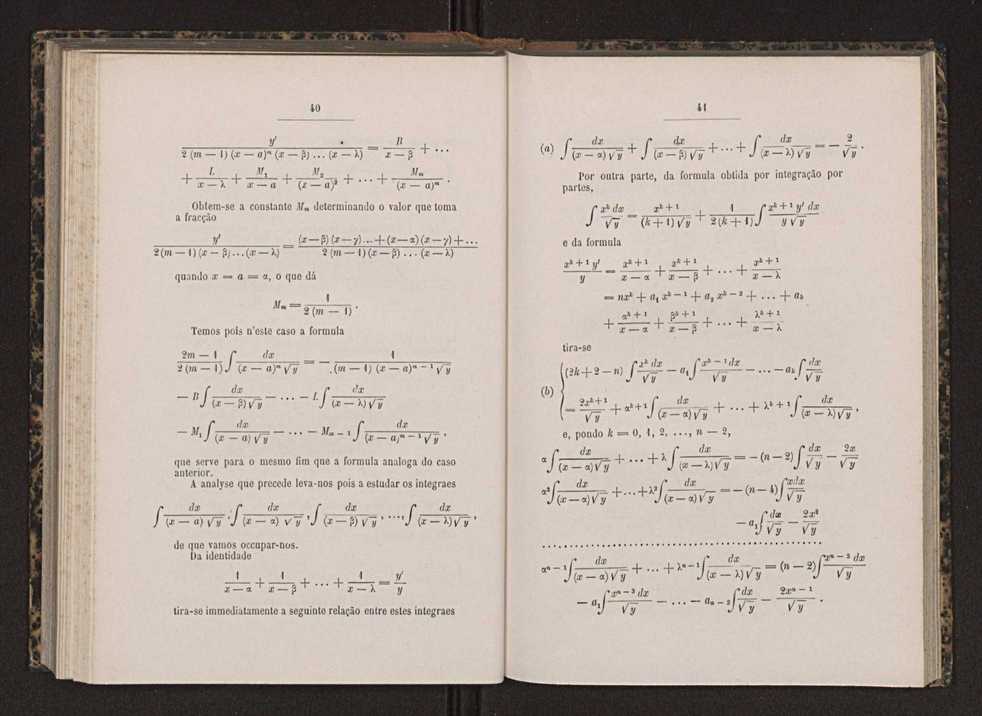 40
y′ / 2 (m — 1) (x — a)ᵐ (x — β) ... (x — λ) = B / x — β + ...
+ L / x — λ + M₁ / x — a + M₂ / (x — a)² + ... + Mₘ / (x — a)ᵐ .
Obtem-se a constante Mₘ determinando o valor que toma
a fracção
y′ / 2 (m — 1) (x — β) ... (x — λ) = (x — β) (x — γ) ... + (x — α) (x — γ) + ... / 2 (m — 1) (x — β) ... (x — λ)
quando x = a = α, o que dá
Mₘ = 1 / 2 (m — 1) .
Temos pois n'este caso a formula
2m — 1 / 2 (m — 1) ∫ dx / (x — a)ᵐ √y = — 1 / (m — 1) (x — a)ᵐ ⁻ ¹ √y
— B ∫ dx / (x — β) √y — ... — L ∫ dx / (x — λ) √y
— M₁ ∫ dx / (x — a) √y — ... — Mₘ ₋ ₁ ∫ dx / (x — a)ᵐ ⁻ ¹ √y ,
que serve para o mesmo fim que a formula analoga do caso
anterior.
A analyse que precede leva-nos pois a estudar os integraes
∫ dx / (x — a) √y , ∫ dx / (x — α) √y , ∫ dx / (x — β) √y , ..., ∫ dx / (x — λ) √y ,
de que vamos occupar-nos.
Da identidade
1 / x — α + 1 / x — β + ... + 1 / x — λ = y′ / y
tira-se immediatamente a seguinte relação entre estes integraes
41
(a) ∫ dx / (x — α) √y + ∫ dx / (x — β) √y + ... + ∫ dx / (x — λ) √y = — 2 / √y .
Por outra parte, da formula obtida por integração por
partes,
∫ xᵏ dx / √y = xᵏ ⁺ ¹ / (k + 1) √y + 1 / 2 (k + 1) ∫ xᵏ ⁺ ¹ y′ dx / y √y
e da formula
xᵏ ⁺ ¹ y′ / y = xᵏ ⁺ ¹ / x — α + xᵏ ⁺ ¹ / x — β + ... + xᵏ ⁺ ¹ / x — λ
= nxᵏ + a₁ xᵏ ⁻ ¹ + a₂ xᵏ ⁻ ² + ... + aₖ
+ αᵏ ⁺ ¹ / x — α + βᵏ ⁺ ¹ / x — β + ... + λᵏ ⁺ ¹ / x — λ
tira-se
(b) { (2k + 2 — n) ∫ xᵏ dx / √y — a₁ ∫ xᵏ ⁻ ¹ dx / √y — ... — aₖ ∫ dx / √y
= 2xᵏ⁺¹ / √y + αᵏ⁺¹ ∫ dx / (x — α) √y + ... + λᵏ ⁺ ¹ ∫ dx / (x — λ) √y ,
e, pondo k = 0, 1, 2, ..., n — 2,
α ∫ dx / (x — α) √y + ... + λ ∫ dx / (x — λ) √y = — (n — 2) ∫ dx / √y — 2x / √y
α² ∫ dx / (x — α) √y + ... + λ² ∫ dx / (x — α) √y = — (n — 4) ∫ xdx / √y
— a₁ ∫ dx / √y — 2x² / √y
..............................
αⁿ ⁻ ¹ ∫ dx / (x — α) √y + ... + λⁿ ⁻ ¹ ∫ dx / (x — λ) √y = (n — 2) ∫ xⁿ ⁻ ² dx / √y
— a₁ ∫ xⁿ ⁻ ³ dx / √y — ... — aₙ ₋ ₂ ∫ dx / √y — 2xⁿ ⁻ ¹ / √y .